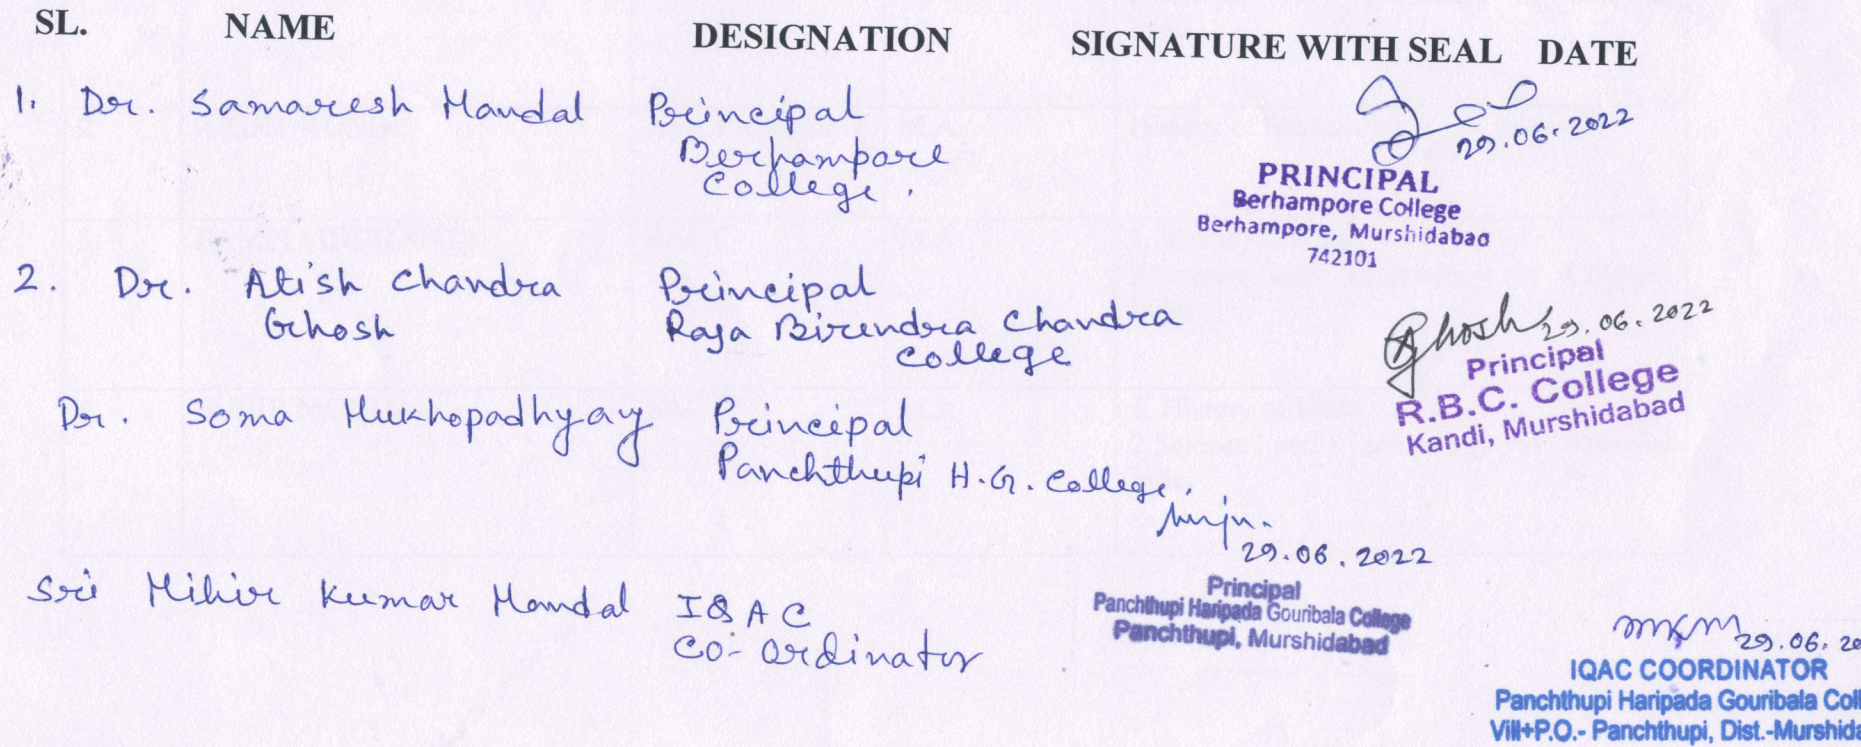 SL. NAME DESIGNATION SIGNATURE WITH SEAL DATE
1. Dr. Samaresh Mandal Principal
Berhampore
College.
29.06.2022
PRINCIPAL
Berhampore College
Berhampore, Murshidabad
742101
2. Dr. Atish Chandra Principal
Ghosh Raja Birendra Chandra
College
Ghosh 29.06.2022
Principal
R.B.C. College
Kandi, Murshidabad
Dr. Soma Mukhopadhyay Principal
Panchthupi H.G. College.
29.06.2022
Principal
Panchthupi Haripada Gouribala College
Panchthupi, Murshidabad
Sri Mihir Kumar Mondal IQAC
Co-ordinator
MKM 29.06.20
IQAC COORDINATOR
Panchthupi Haripada Gouribala Coll
Vill+P.O.- Panchthupi, Dist.-Murshida